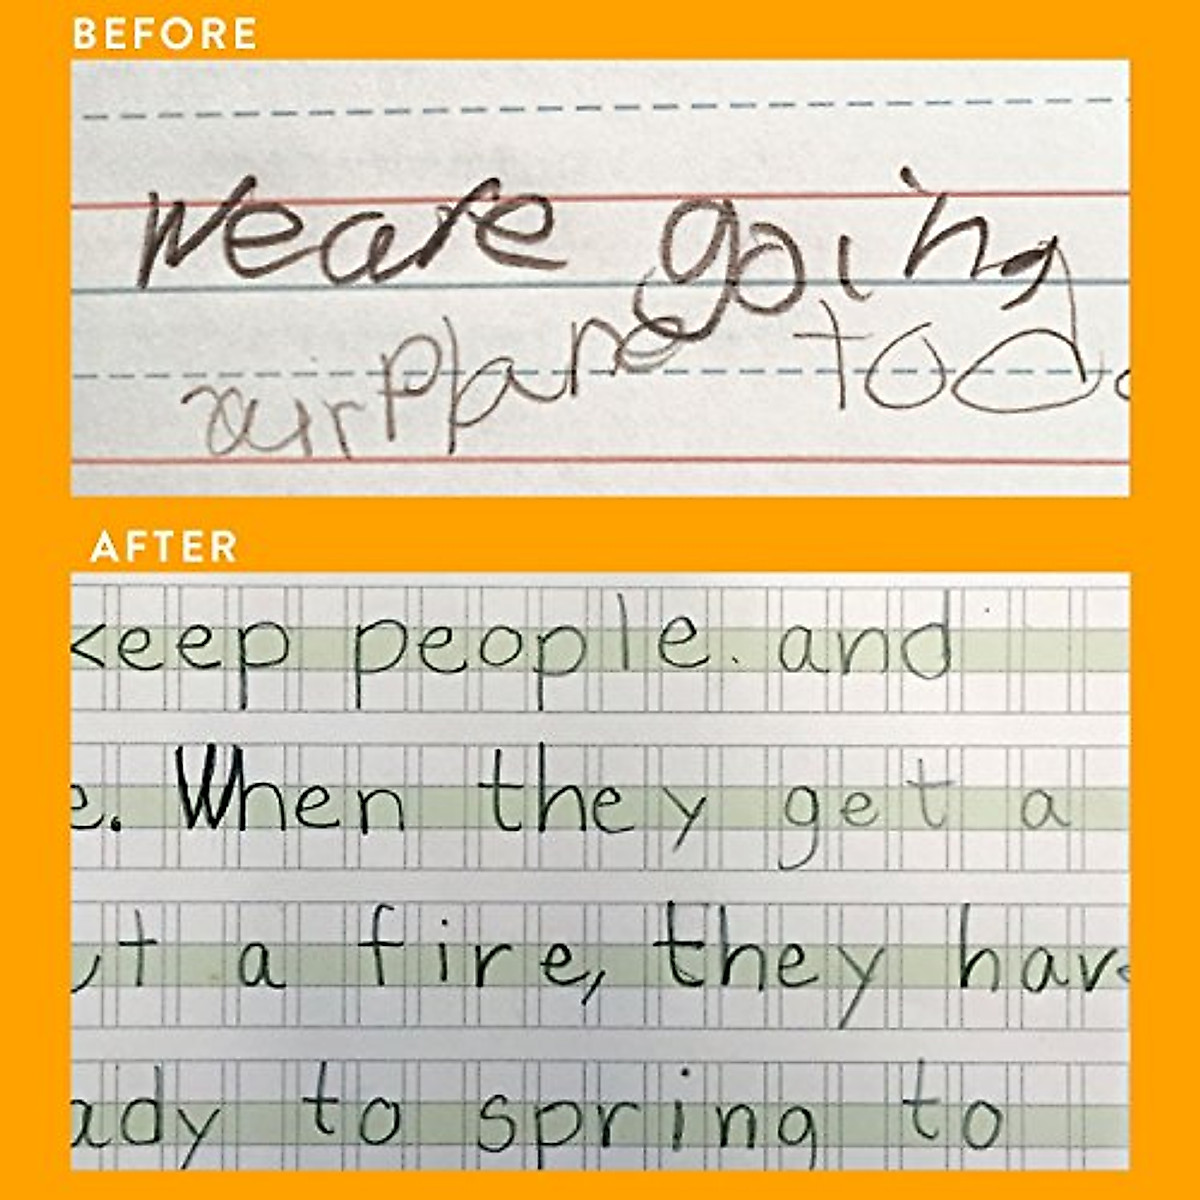 BEFORE
We are going
airplane tod
AFTER
keep people. and
e. When they get a
ut a fire, they have
ady to spring to